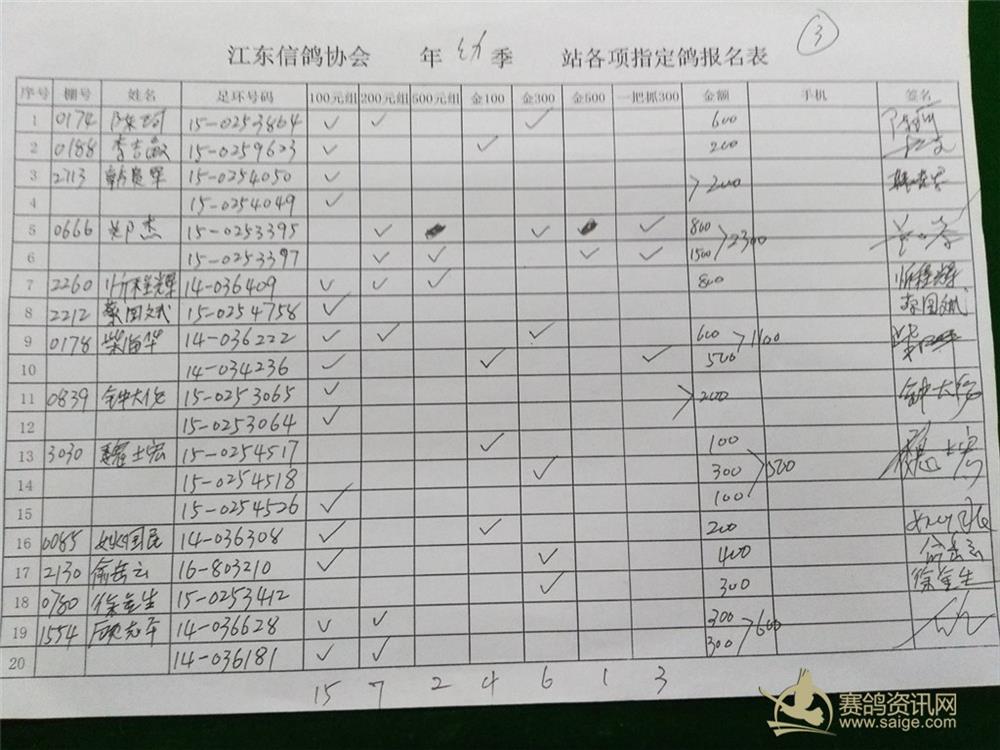 ③
江东信鸽协会 年 幼 季 站各项指定鸽报名表
序号 棚号 姓名 足环号码 100元组 200元组 500元组 金100 金300 金500 一把抓300 金额 手机 签名
1 0174 陈 15-0253864 ✓ ✓ ✓ 600 陈
2 0188 李吉 15-0259623 ✓ ✓ 200
3 2713 韩贵军 15-0254050 ✓ >200
4 15-0254049 ✓
5 0666 郑杰 15-0253395 ✓ ✓ ✓ 800 >2300
6 15-0253397 ✓ ✓ ✓ ✓ 1500
7 2260 忻程辉 14-036409 ✓ ✓ ✓ 800 忻程辉
8 2212 蔡国斌 15-0254758 ✓ 蔡国斌
9 0178 柴海华 14-036222 ✓ ✓ ✓ 600 >1100
10 14-034236 ✓ ✓ ✓ 500
11 0839 钟大信 15-0253065 ✓ >200 钟大信
12 15-0253064 ✓
13 3030 魏士宏 15-0254517 ✓ 100 >500 魏士宏
14 15-0254518 ✓ 300
15 15-0254526 ✓ 100
16 0085 姚国民 14-036308 ✓ ✓ 200
17 2130 俞岳云 16-803210 ✓ ✓ 400 俞岳云
18 0780 徐金生 15-0253412 ✓ 300 徐金生
19 1554 顾志平 14-036628 ✓ ✓ 300 >600
20 14-036181 ✓ ✓ 300
15 7 2 4 6 1 3
赛鸽资讯网
www.saige.com